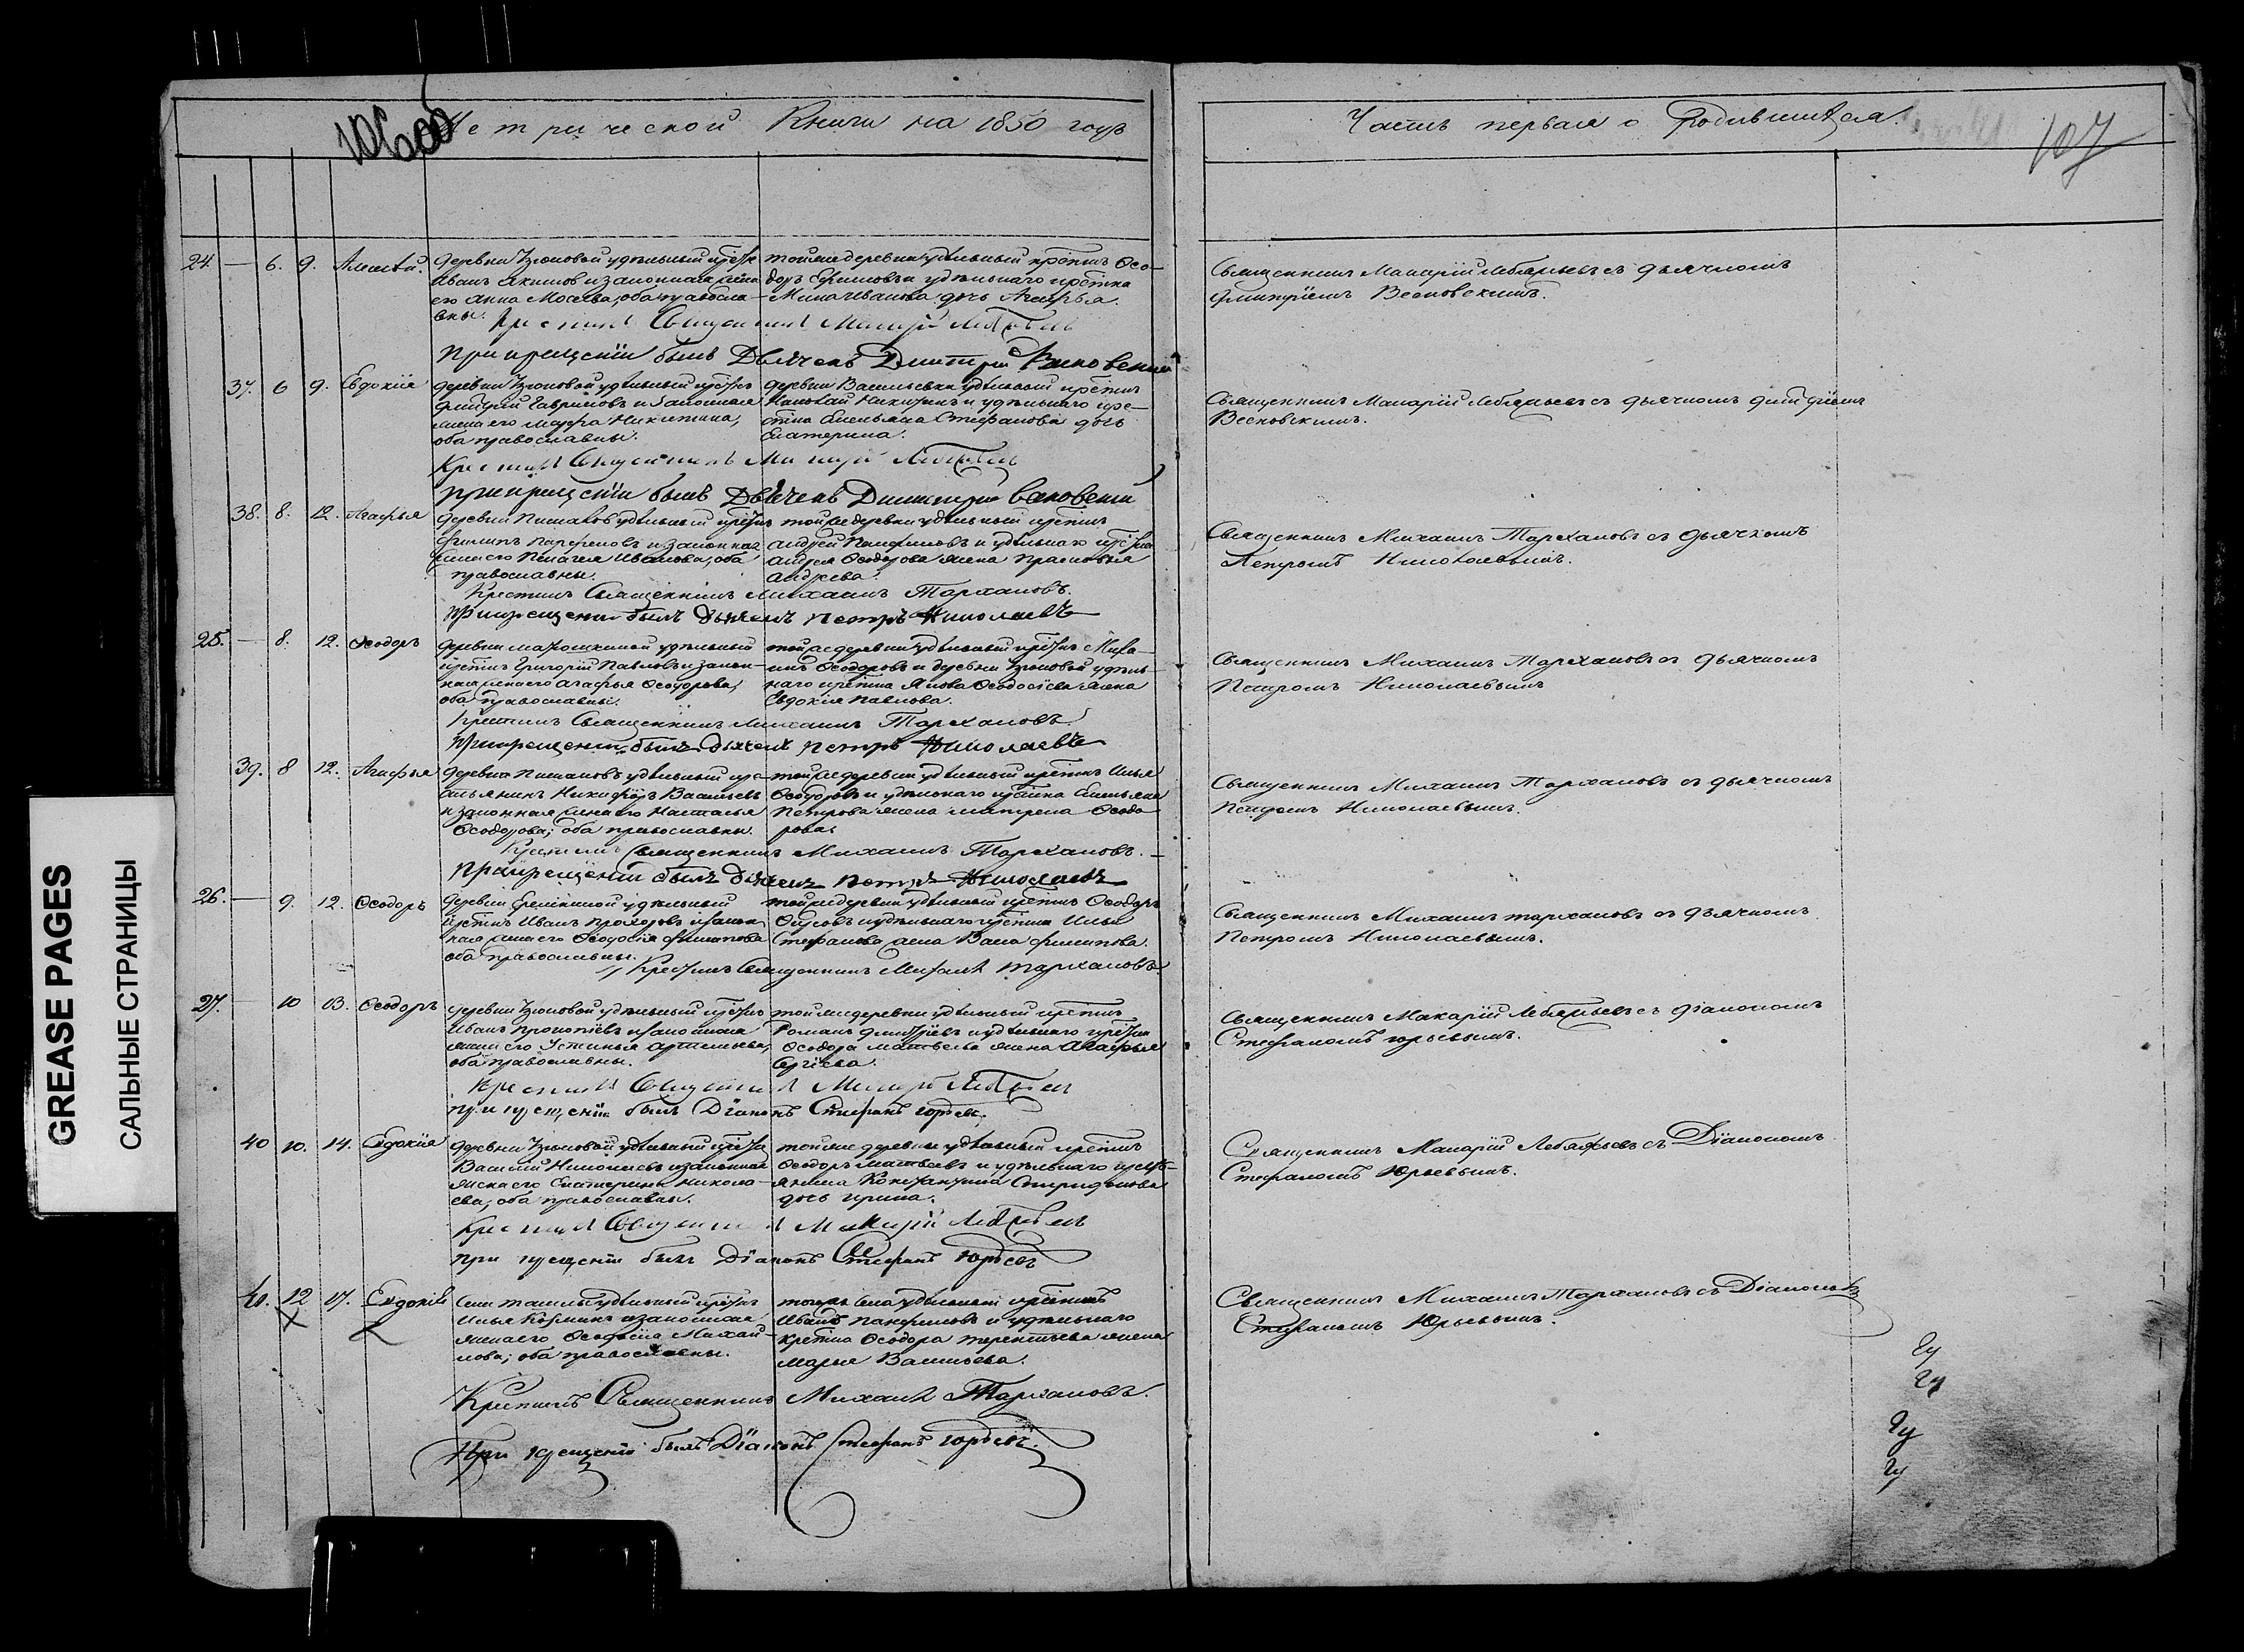 Метрической Книги на 1850 годъ
Часть первая о Родившихся.
107
24. — 6. 9. Алексѣй.
деревни Изюмовой удѣльный крест.
Иванъ Акимовъ и законная жена
его Анна Мосѣева, оба православ-
ны.
той же деревни удѣльный крестин. Ѳео-
доръ Ефимовъ и удѣльнаго крестин.
Мина Иванова дочь Агафья.
Крестилъ Священникъ Макарій
При крещеніи былъ Дьячекъ Димитрій
Священникъ Макарій Лебедьевъ съ дьячкомъ
Димитріемъ
37. 6 9. Евдокія
удѣльный крест.
Дмитрій Гавриловъ и законная
жена его Марфа Никитина,
оба православны.
деревни Васильевки удѣльный крестин.
Никитинъ и удѣльнаго кре-
стина Емельяна Стефанова дочь
Екатерина.
Крестилъ Священникъ Макарій
При крещеніи былъ Дьячекъ Димитрій
Священникъ Макарій Лебедьевъ съ дьячкомъ Димитріемъ
38. 8. 12. Агафья
удѣльный крест.
Филипъ Парфеновъ и законная
жена его Пелагея Иванова, оба
православны.
той же деревни удѣльный крестин.
Андрей Панфиловъ и удѣльнаго крестин.
Андрея Ѳеодорова жена Прасковья
Андреева.
Крестилъ Священникъ Михаилъ Тархановъ.
При крещеніи былъ Дьячекъ Петръ Николаевъ
Священникъ Михаилъ Тархановъ съ дьячкомъ
Петромъ Николаевымъ.
25. — 8. 12. Ѳеодоръ
удѣльный
крестин. Григорій Павловъ и закон-
ная жена его Агафья Ѳеодорова,
оба православны.
той же деревни удѣльный крест. Миха-
илъ Ѳеодоровъ и деревни Изюмовой удѣль-
наго крестина Якова Ѳеодосіева жена
Евдокія Павлова.
Крестилъ Священникъ Михаилъ Тархановъ.
При крещеніи былъ дьячекъ Петръ Николаевъ
Священникъ Михаилъ Тархановъ съ дьячкомъ
Петромъ Николаевымъ
39. 8 12. Агафья
удѣльный кре-
стьянинъ Никифоръ Васильевъ
и законная жена его Настасья
Ѳеодорова; оба православны.
той же деревни удѣльный крестин. Илья
Ѳеодоровъ и удѣльнаго крестина Емельяна
Петрова жена Матрена Ѳеодо-
рова.
Крестилъ Священникъ Михаилъ Тархановъ. —
При крещеніи былъ дьячекъ Петръ Николаевъ
Священникъ Михаилъ Тархановъ съ дьячкомъ
Петромъ Николаевымъ.
26. — 9. 12. Ѳеодоръ
удѣльный
крестин. Иванъ Прохоровъ и закон-
ная жена его Ѳеодосія Филипова
оба православны.
той же деревни удѣльный крестин. Ѳеодоръ
и удѣльнаго крестина Ильи
Стефанова жена Васса Филипова.
Крестилъ Священникъ Михаилъ Тархановъ.
Священникъ Михаилъ Тархановъ съ дьячкомъ
Петромъ Николаевымъ.
27. — 10 13. Ѳеодоръ
деревни Изюмовой удѣльный крест.
Иванъ Прокопіевъ и законная
жена его Устинья Артемьева,
оба православны.
той же деревни удѣльный крестин.
Романъ Дмитріевъ и удѣльнаго крестин.
Ѳеодора Матвѣева жена Агафья
Сергіева.
Крестилъ Священникъ Макарій
При крещеніи былъ Діаконъ Стефанъ Юрьевъ.
Священникъ Макарій Лебедьевъ съ діакономъ
Стефаномъ Юрьевымъ.
40 10. 14. Евдокія
деревни Изюмовой удѣльный крест.
Василій Николаевъ и законная
жена его Екатерина Никола-
ева, оба православны.
той же деревни удѣльный крестин.
Ѳеодоръ Матвѣевъ и удѣльнаго кресть-
янина Константина Спиридонова
дочь Ирина.
Крестилъ Священникъ Макарій
При крещеніи былъ Діаконъ Стефанъ Юрьевъ
Священникъ Макарій Лебедьевъ съ Діакономъ
Стефаномъ Юрьевымъ.
12 17. Евдокія
удѣльный крест.
Илья Козминъ и законная
жена его Ѳеодосія Михай-
лова; оба православны.
того же села удѣльный крестинъ
Иванъ Панфиловъ и удѣльнаго
крестина Ѳеодора Терентьева жена
Марья Васильева.
Крестилъ Священникъ Михаилъ Тархановъ.
При крещеніи былъ Діаконъ Стефанъ Юрьевъ.
Священникъ Михаилъ Тархановъ съ Діакономъ
Стефаномъ Юрьевымъ.
GREASE PAGES
САЛЬНЫЕ СТРАНИЦЫ